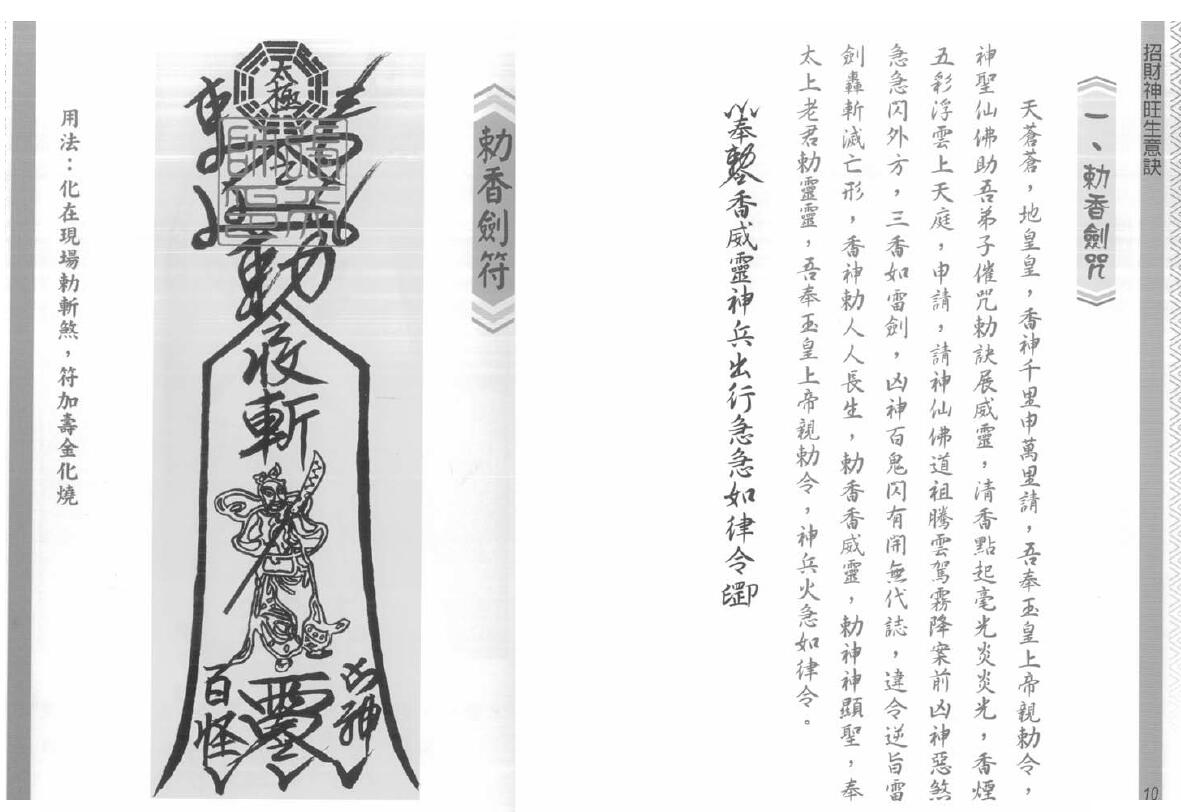 招財神旺生意訣
一、勅香劍咒
天蒼蒼，地皇皇，香神千里申萬里請，吾奉玉皇上帝親勅令，
神聖仙佛助吾弟子催咒勅訣展威靈，清香點起毫光炎炎光，香煙
五彩浮雲上天庭，申請，請神仙佛道祖騰雲駕霧降案前凶神惡煞
急急閃外方，三香如雷劍，凶神百鬼閃有開無代誌，違令逆旨雷
劍轟斬滅亡形，香神勅人人長生，勅香香威靈，勅神神顯聖，奉
太上老君勅靈靈，吾奉玉皇上帝親勅令，神兵火急如律令。
奉香威靈神兵出行急急如律令
10
勅香劍符
太極
勅
收斬
凶神
百怪
用法：化在現場勅斬煞，符加壽金化燒